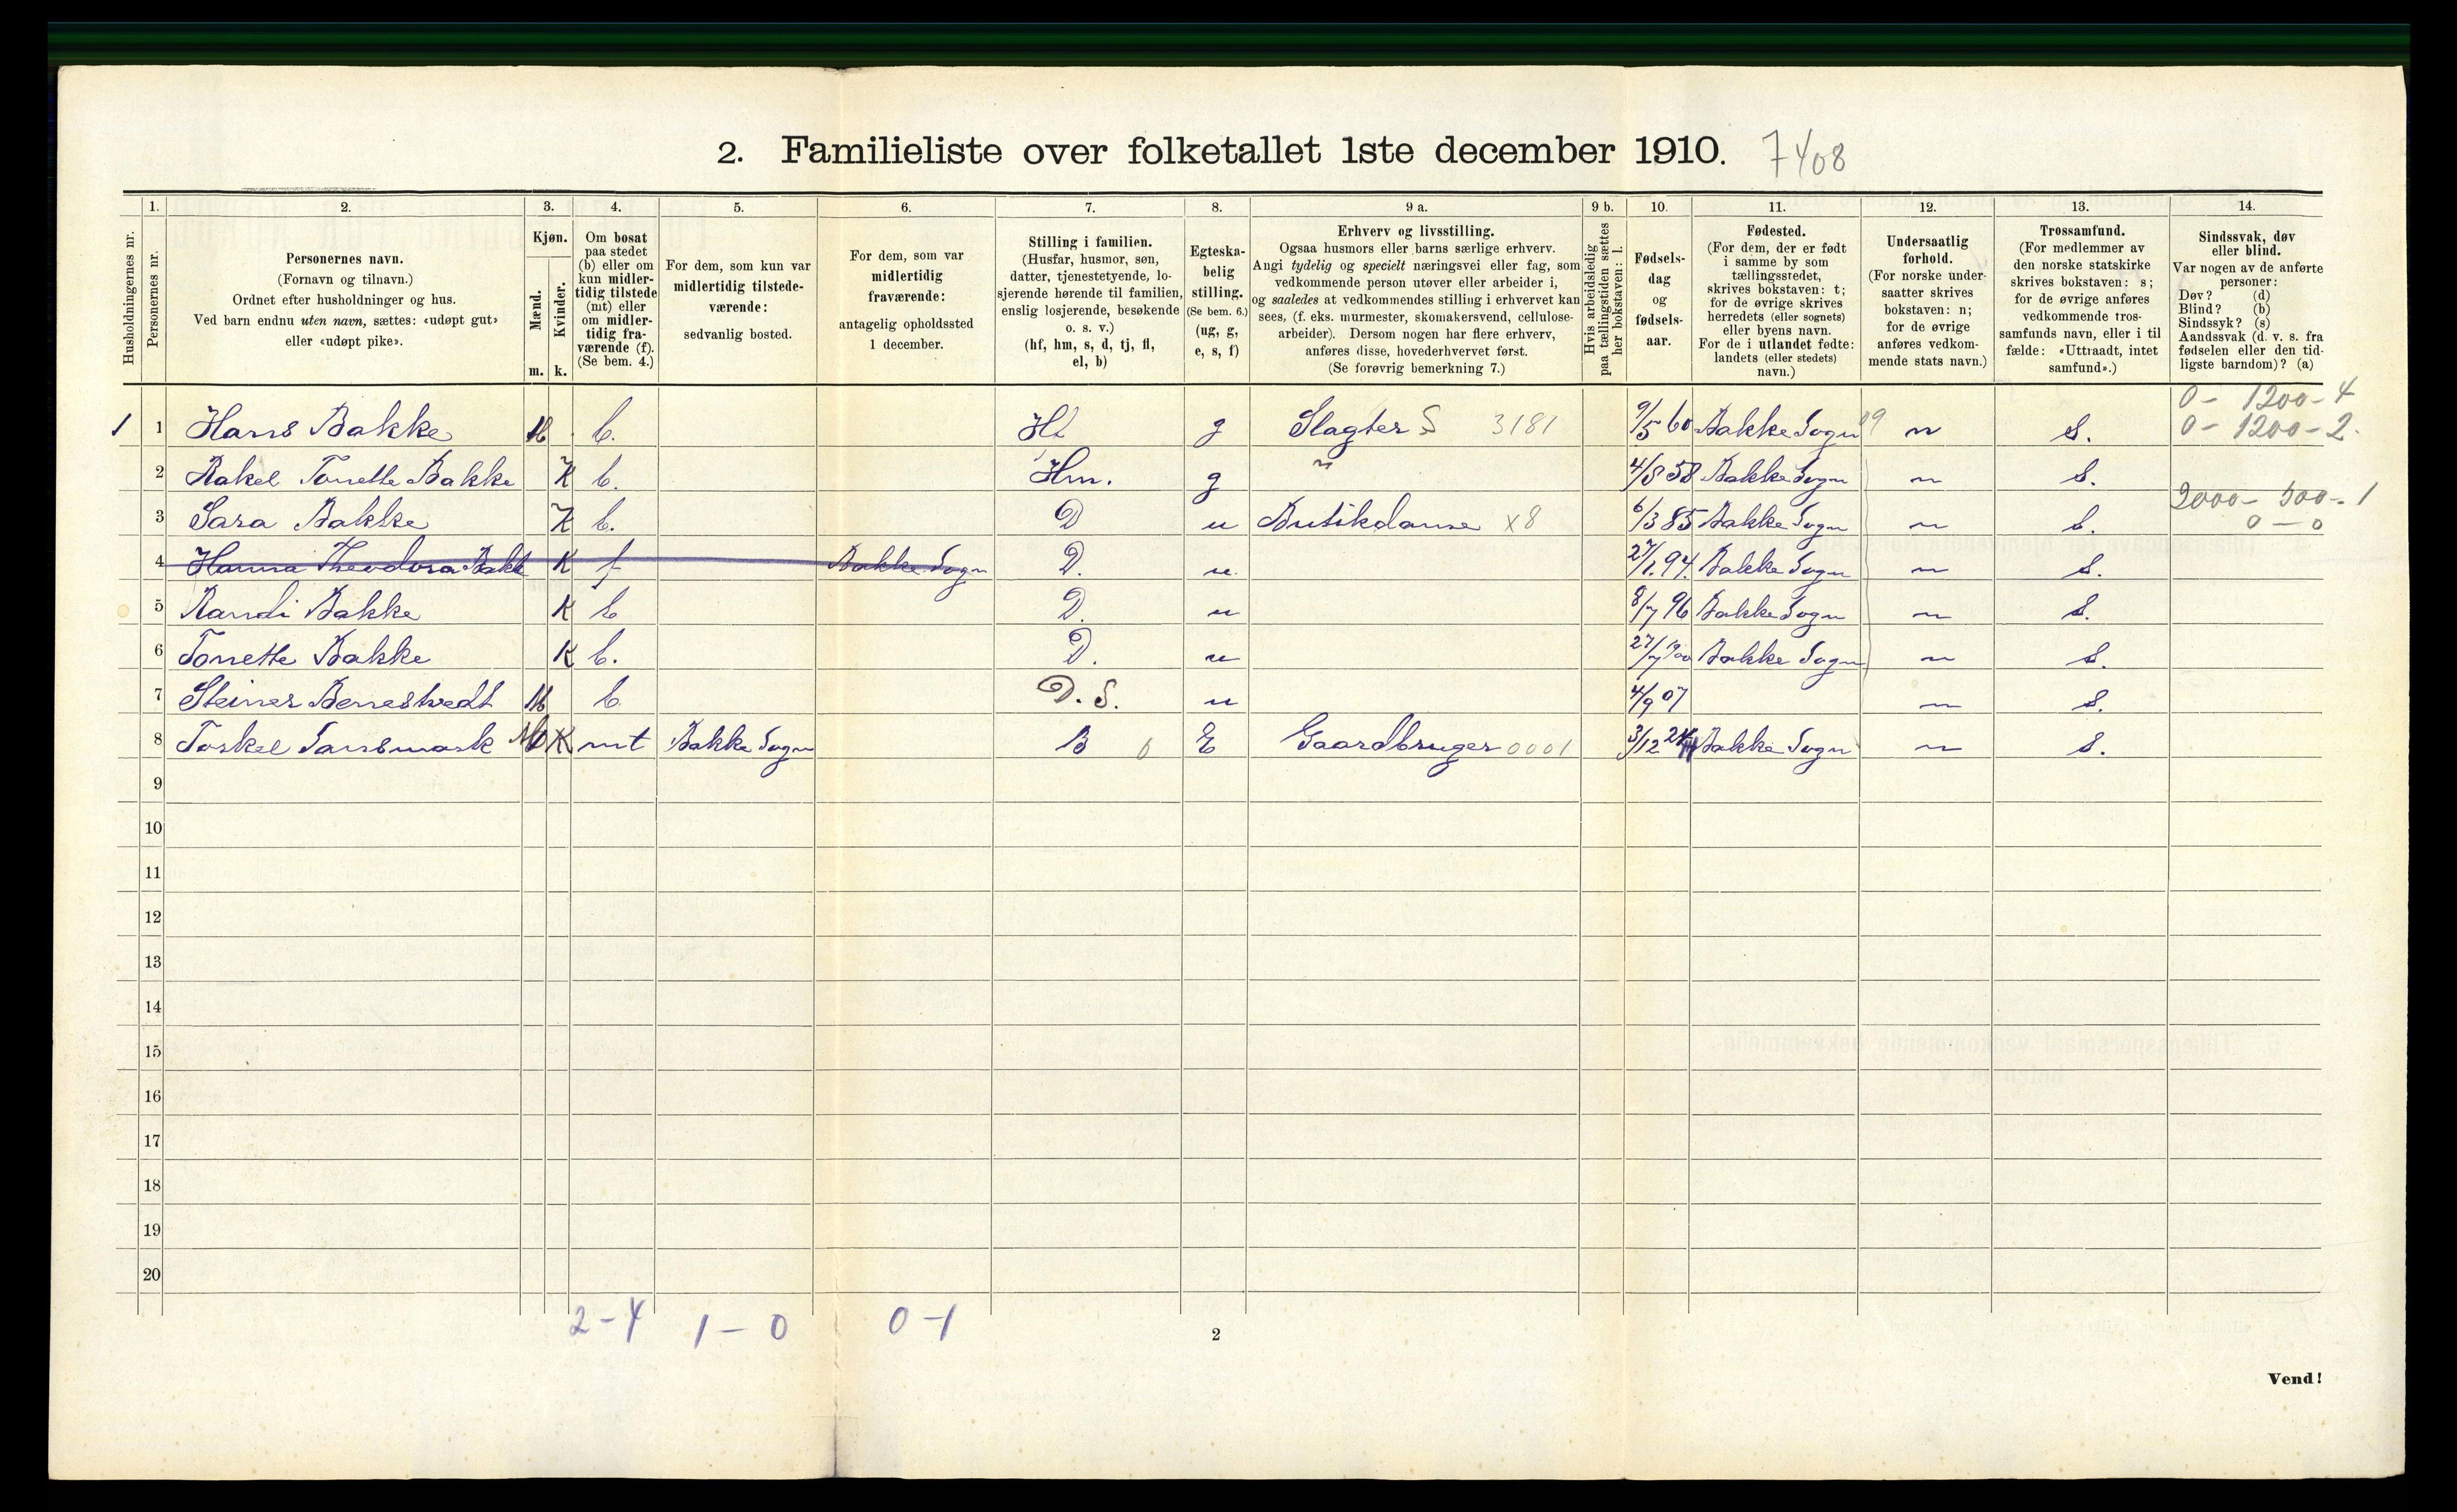 2. Familieliste over folketallet 1ste december 1910. 7408
Husholdningernes nr.
1.
Personernes nr.
2.
Personernes navn.
(Fornavn og tilnavn.)
Ordnet efter husholdninger og hus.
Ved barn endnu uten navn, sættes: «udøpt gut»
eller «udøpt pike».
3.
Kjøn.
Mænd.
Kvinder.
m. k.
4.
Om bosat
paa stedet
(b) eller om
kun midler-
tidig tilstede
(mt) eller
om midler-
tidig fra-
værende (f).
(Se bem. 4.)
5.
For dem, som kun var
midlertidig tilstede-
værende:
sedvanlig bosted.
6.
For dem, som var
midlertidig
fraværende:
antagelig opholdssted
1 december.
7.
Stilling i familien.
(Husfar, husmor, søn,
datter, tjenestetyende, lo-
sjerende hørende til familien,
enslig losjerende, besøkende
o. s. v.)
(hf, hm, s, d, tj, fl,
el, b)
8.
Egteska-
belig
stilling.
(Se bem. 6.)
(ug, g,
e, s, f)
9 a.
Erhverv og livsstilling.
Ogsaa husmors eller barns særlige erhverv.
Angi tydelig og specielt næringsvei eller fag, som
vedkommende person utøver eller arbeider i,
og saaledes at vedkommendes stilling i erhvervet kan
sees, (f. eks. murmester, skomakersvend, cellulose-
arbeider). Dersom nogen har flere erhverv,
anføres disse, hovederhvervet først.
(Se forøvrig bemerkning 7.)
9 b.
Hvis arbeidsledig
paa tællingstiden sættes
her bokstaven: l.
10.
Fødsels-
dag
og
fødsels-
aar.
11.
Fødested.
(For dem, der er født
i samme by som
tællingsstedet,
skrives bokstaven: t;
for de øvrige skrives
herredets (eller sognets)
eller byens navn.
For de i utlandet fødte:
landets (eller stedets)
navn.)
12.
Undersaatlig
forhold.
(For norske under-
saatter skrives
bokstaven: n;
for de øvrige
anføres vedkom-
mende stats navn.)
13.
Trossamfund.
(For medlemmer av
den norske statskirke
skrives bokstaven: s;
for de øvrige anføres
vedkommende tros-
samfunds navn, eller i til
fælde: «Uttraadt, intet
samfund».)
14.
Sindssvak, døv
eller blind.
Var nogen av de anførte
personer:
Døv? (d)
Blind? (b)
Sindssyk? (s)
Aandssvak (d. v. s. fra
fødselen eller den tid-
ligste barndom)? (a)
0 - 1200 - 4
1 1 Hans Bakke M b. Hf g Slagter S 3181 9/5 60 Bakke Sogn 19 n S. 0 - 1200 - 2.
2 Rakel Tonette Bakke K b. Hm. g " 4/8 58 Bakke Sogn n S.
2000 - 500 - 1
3 Sara Bakke K b. D u Butikdame x8 6/3 85 Bakke Sogn n S. 0 - 0
4 Hanna Theodora Bakke K f Bakke Sogn D. u. 27/1. 94. Bakke Sogn n S.
5 Randi Bakke K b D. u 8/7 96 Bakke Sogn n S.
6 Tonette Bakke K b. D. u 27/7 1900 Bakke Sogn n S.
7 Steiner Benestvedt M b D. S. u 4/9 07 n S.
8 Torkel M K mt Bakke Sogn B 0 E Gaardbruger 0001 3/12 24 Bakke Sogn n S.
9
10
11
12
13
14
15
16
17
18
19
20
2 - 4 1 - 0 0 - 1
2
Vend!